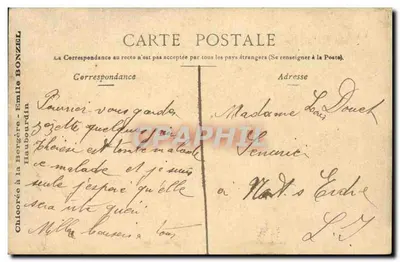 CARTE POSTALE
La Correspondance au recto n'est pas acceptée par tous les pays étrangers (Se renseigner à la Poste).
Correspondance
Adresse
Chicorée à la Bergère - Emile BONZEL
Haubourdin
CPAPHIL
Pourriez vous garder
quelques
est toute malade
ce malade et je suis
seule j'espère qu'elle
sera vite guéri
Mille baisers à tous
Madame Louis Douet
à Nort s Erdre
L. I.